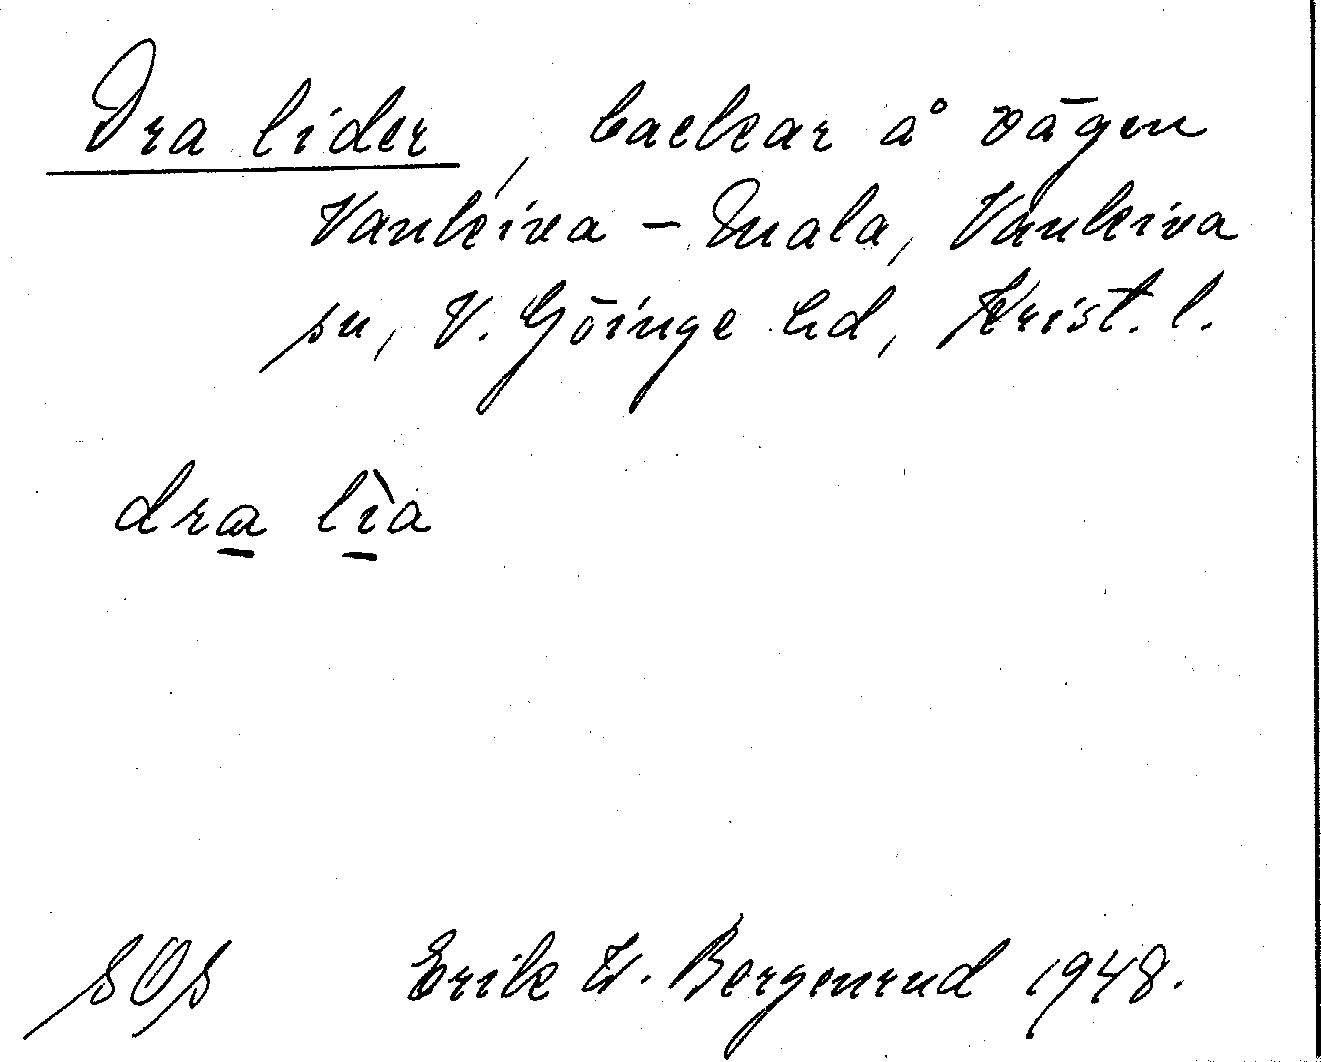 Dra lider, backar å vägen
Vankiva – Mala, Vankiva
sn, V. Göinge hd, Krist. l.
dra lìa
SOS Erik W. Bergenrud 1948.